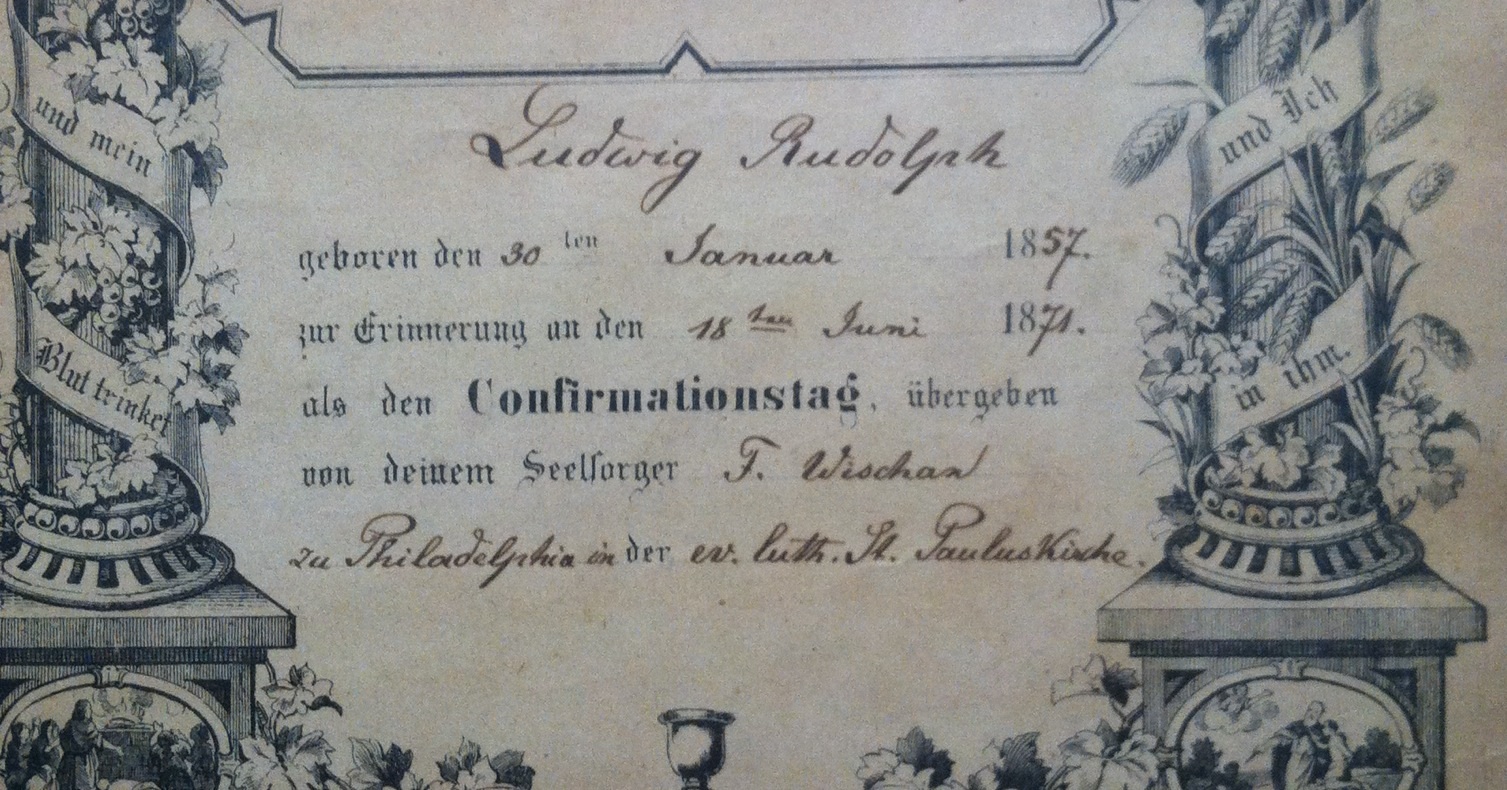 und mein
Blut trinket
Ludwig Rudolph
geboren den 30ten Januar 1857.
zur Erinnerung an den 18ten Juni 1871.
als den Confirmationstag, übergeben
von deinem Seelsorger F. Wischan
zu Philadelphia in der ev. luth. St. Pauluskirche.
und Ich
in ihm.